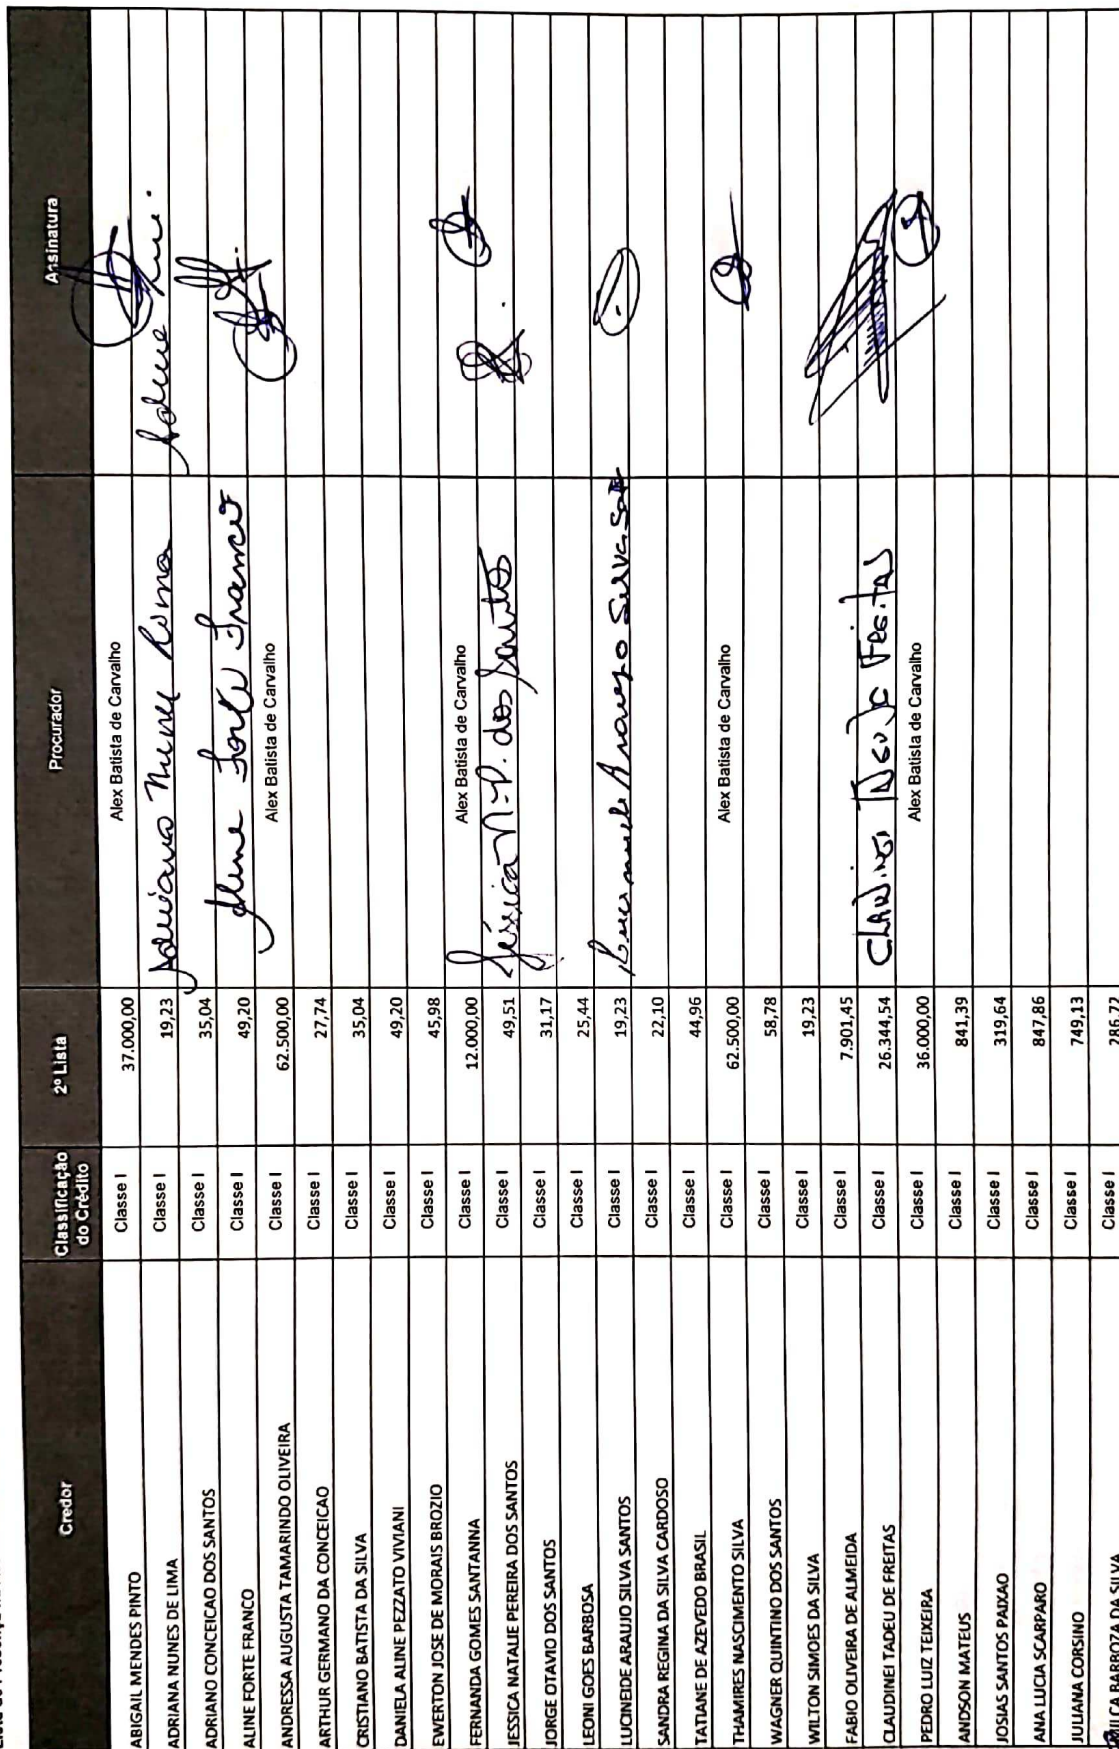 Credor Classificação do Crédito 2º Lista Procurador Assinatura
ABIGAIL MENDES PINTO Classe I 37.000,00 Alex Batista de Carvalho
ADRIANA NUNES DE LIMA Classe I 19,23 Adriana Nunes Lima
ADRIANO CONCEICAO DOS SANTOS Classe I 35,04
ALINE FORTE FRANCO Classe I 49,20 Aline Forte Franco
ANDRESSA AUGUSTA TAMARINDO OLIVEIRA Classe I 62.500,00 Alex Batista de Carvalho
ARTHUR GERMANO DA CONCEICAO Classe I 27,74
CRISTIANO BATISTA DA SILVA Classe I 35,04
DANIELA ALINE PEZZATO VIVIANI Classe I 49,20
EWERTON JOSE DE MORAIS BROZIO Classe I 45,98
FERNANDA GOMES SANTANNA Classe I 12.000,00 Alex Batista de Carvalho
JESSICA NATALIE PEREIRA DOS SANTOS Classe I 49,51 Jéssica N. P. dos Santos
JORGE OTAVIO DOS SANTOS Classe I 31,17
LEONI GOES BARBOSA Classe I 25,44
LUCINEIDE ARAUJO SILVA SANTOS Classe I 19,23
SANDRA REGINA DA SILVA CARDOSO Classe I 22,10
TATIANE DE AZEVEDO BRASIL Classe I 44,96
THAMIRES NASCIMENTO SILVA Classe I 62.500,00 Alex Batista de Carvalho
WAGNER QUINTINO DOS SANTOS Classe I 58,78
WILTON SIMOES DA SILVA Classe I 19,23
FABIO OLIVEIRA DE ALMEIDA Classe I 7.901,45
CLAUDINEI TADEU DE FREITAS Classe I 26.344,54
PEDRO LUIZ TEIXEIRA Classe I 36.000,00 Alex Batista de Carvalho
ANDSON MATEUS Classe I 841,39
JOSIAS SANTOS PAIXAO Classe I 319,64
ANA LUCIA SCARPARO Classe I 847,86
JULIANA CORSINO Classe I 749,13
BARBOZA DA SILVA Classe I 286,72